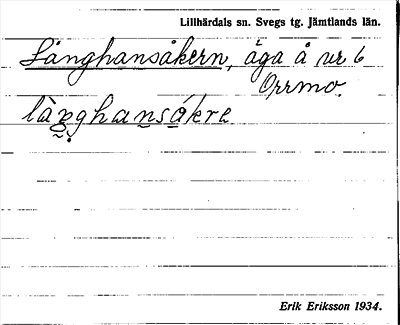 Lillhärdals sn. Svegs tg. Jämtlands län.
Långhansåkern, äga å nr 6
Orrmo.
làŋghansákre
Erik Eriksson 1934.